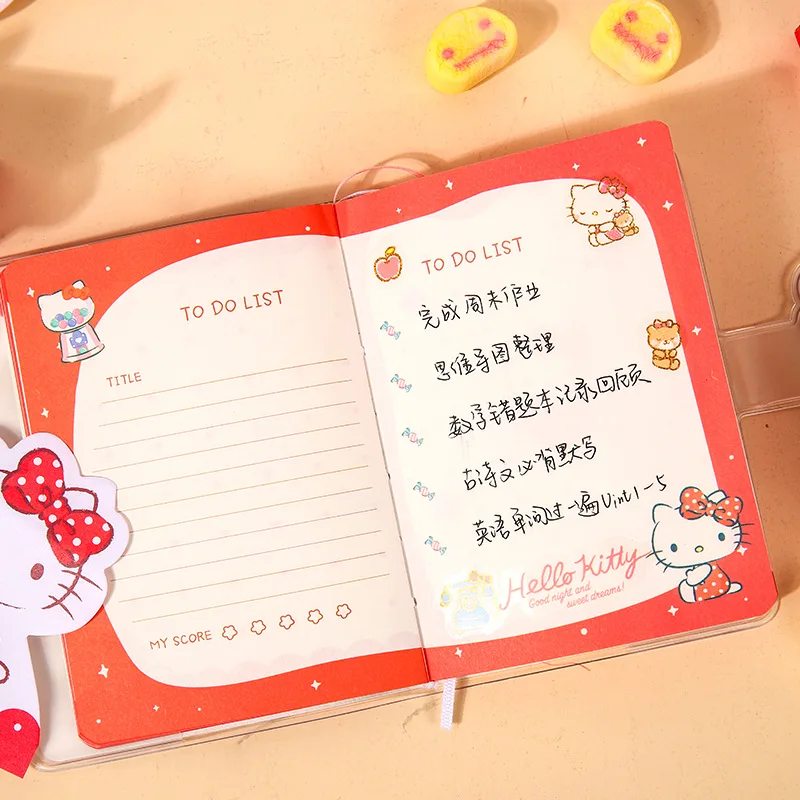 TO DO LIST
TITLE
MY SCORE
TO DO LIST
完成周末作业
思维导图整理
数学错题本记录回顾
古诗文必背默写
英语单词过一遍Uint1-5
Hello Kitty
Good night and
sweet dreams!